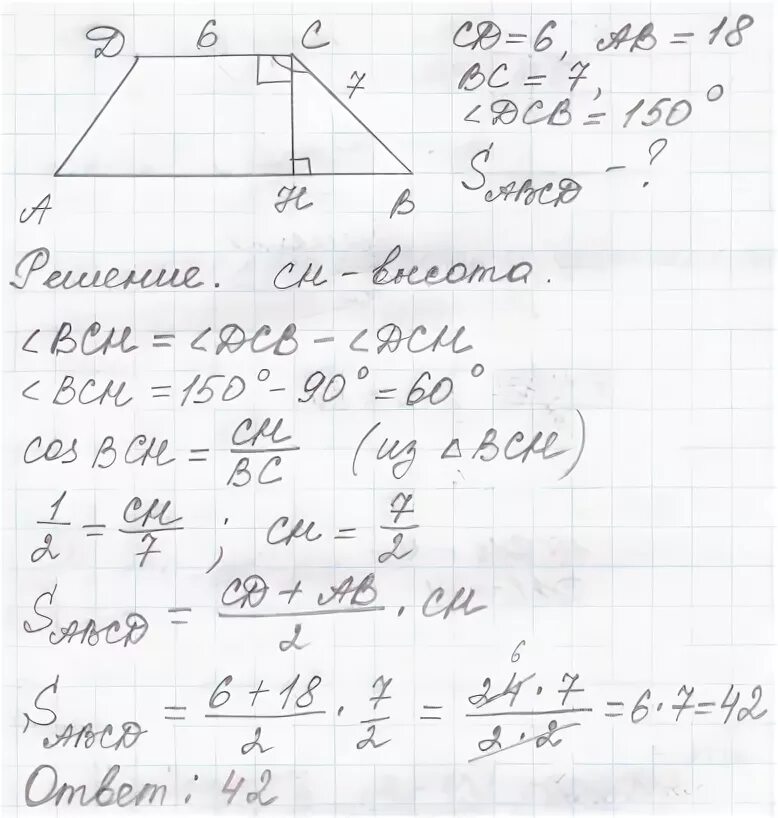 D 6 C
7
A H B
CD = 6, AB = 18
BC = 7,
∠DCB = 150°
S_ABCD - ?
Решение. CH - высота.
∠BCH = ∠DCB - ∠DCH
∠BCH = 150° - 90° = 60°
cos BCH = CH/BC (из △BCH)
1/2 = CH/7 ; CH = 7/2
S_ABCD = (CD + AB)/2 · CH
S_ABCD = (6 + 18)/2 · 7/2 = (24 · 7)/(2 · 2) 6 = 6 · 7 = 42
Ответ: 42